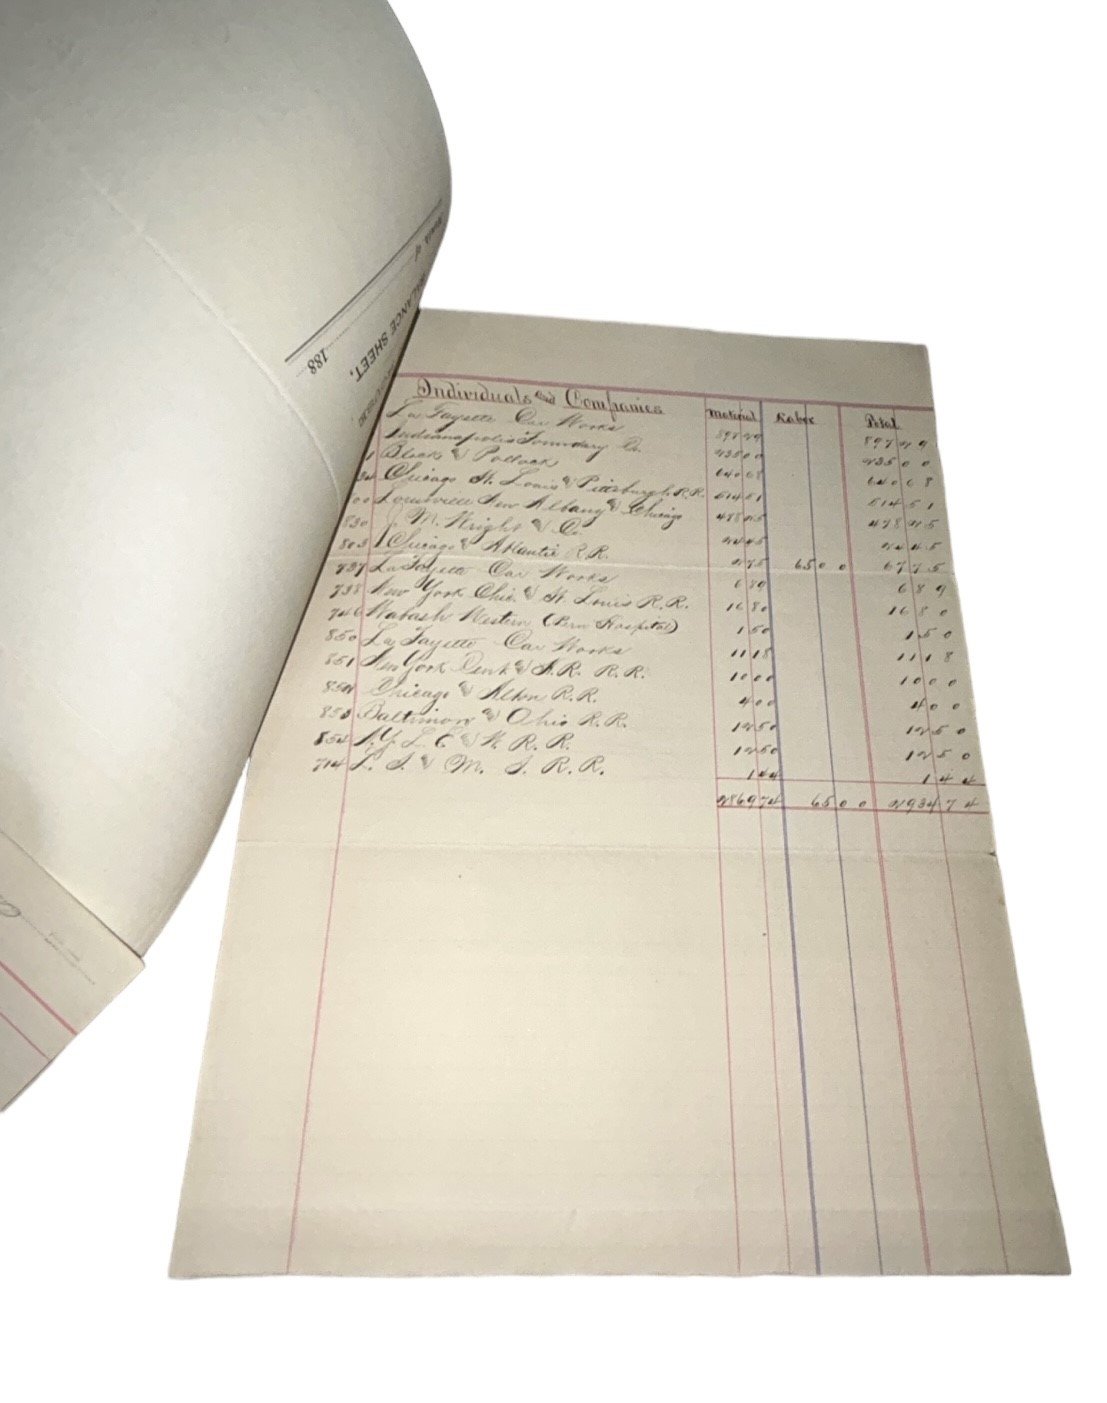 188
BALANCE SHEET.
Individuals and Companies Material Labor Total
La Fayette Car Works 897 29 897 29
Indianapolis Foundary Co. 235 00 235 00
1 Block & Pollack 640 68 640 68
Chicago St. Louis & Pittsburgh R.R. 514 51 514 51
Louisville New Albany & Chicago 478 25 478 25
830 J. M. Wright & Co. 24 45 24 45
803 1 Chicago & Atlantic R.R. 2 75 65 00 67 75
737 La Fayette Car Works 6 89 6 89
738 New York Chic. & St. Louis R.R. 16 80 16 80
746 Wabash Western (Peru Hospital) 1 50 1 50
850 La Fayette Car Works 11 18 11 18
851 New York Penn & O. R. R. 10 00 10 00
852 Chicago & Alton R.R. 4 00 4 00
853 Baltimore & Ohio R.R. 12 50 12 50
854 N.Y. L. E. & W. R.R. 12 50 12 50
714 L. S. & M. S. R.R. 1 44 1 44
2869 74 65 00 2934 74